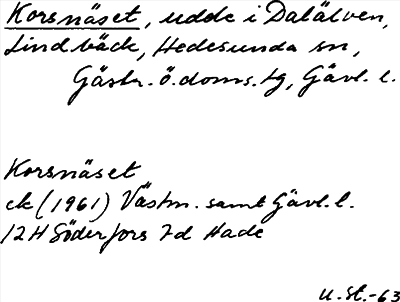 Korsnäset, udde i Dalälven,
Lindbäck, Hedesunda sn,
Gästr. ö. doms. tg, Gävl. l.
Korsnäset
ek (1961) Västm. samt Gävl. l.
12H Söderfors 7d Hade
U. St. -63